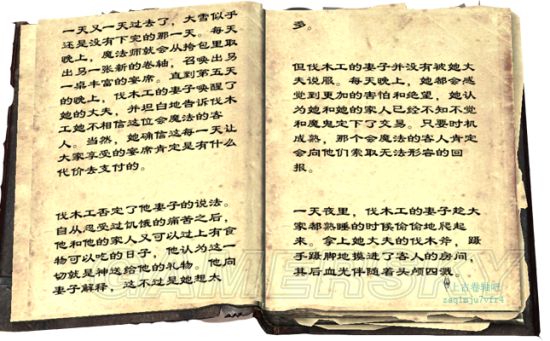 一天又一天过去了，大雪似乎
还是没有下完的那一天。每天
晚上，魔法师就会从挎包里取
出另一张新的卷轴，召唤出另
一桌丰富的宴席。直到第五天
的晚上，伐木工的妻子唤醒了
她的大夫，并坦白地告诉伐木
工她不相信这位会魔法的客
人。当然，她确信这每一天让
大家享受的宴席肯定是有什么
代价去支付的。
伐木工否定了他妻子的说法。
自从忍受过饥饿的痛苦之后，
他和他的家人又可以过上有食
物可以吃的日子。他认为这一
切就是神送给他的礼物。他向
妻子解释，这不过是她想太
多。
但伐木工的妻子并没有被她大
夫说服。每天晚上，她都会感
觉到更加的害怕和绝望，她认
为她和她的家人已经不知不觉
和魔鬼定下了交易。只要时机
成熟，那个会魔法的客人肯定
会向他们索取无法形容的回
报。
一天夜里，伐木工的妻子趁大
家都熟睡的时候偷偷地爬起
来。拿上她大夫的伐木斧，蹑
手蹑脚地摸进了客人的房间，
其后血光伴随着头颅四溅。
GAMERSKY
@上古卷轴吧
zaqxmju7vfr4